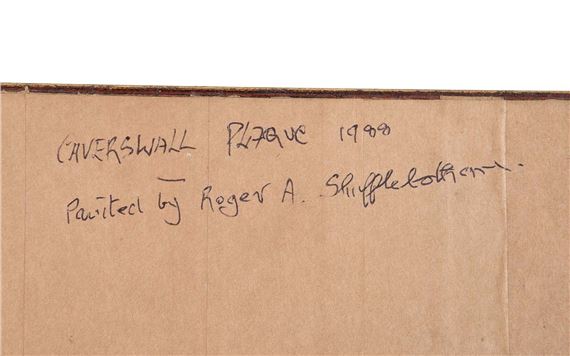 CAVERSWALL PLAQUE 1988
Painted by Roger A. Shufflebotham.